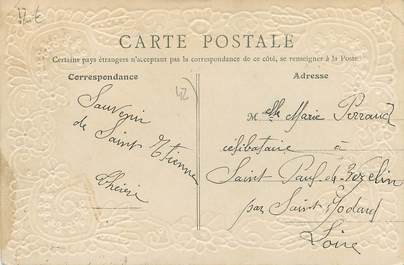 CARTE POSTALE
Certains pays étrangers n'acceptant pas la correspondance de ce côté, se renseigner à la Poste.
Correspondance
Adresse
42
Souvenir
de Saint Etienne
M elle Marie Perraud
célibataire à
Saint Paul de Vézelin
par Saint Jodard
Loire